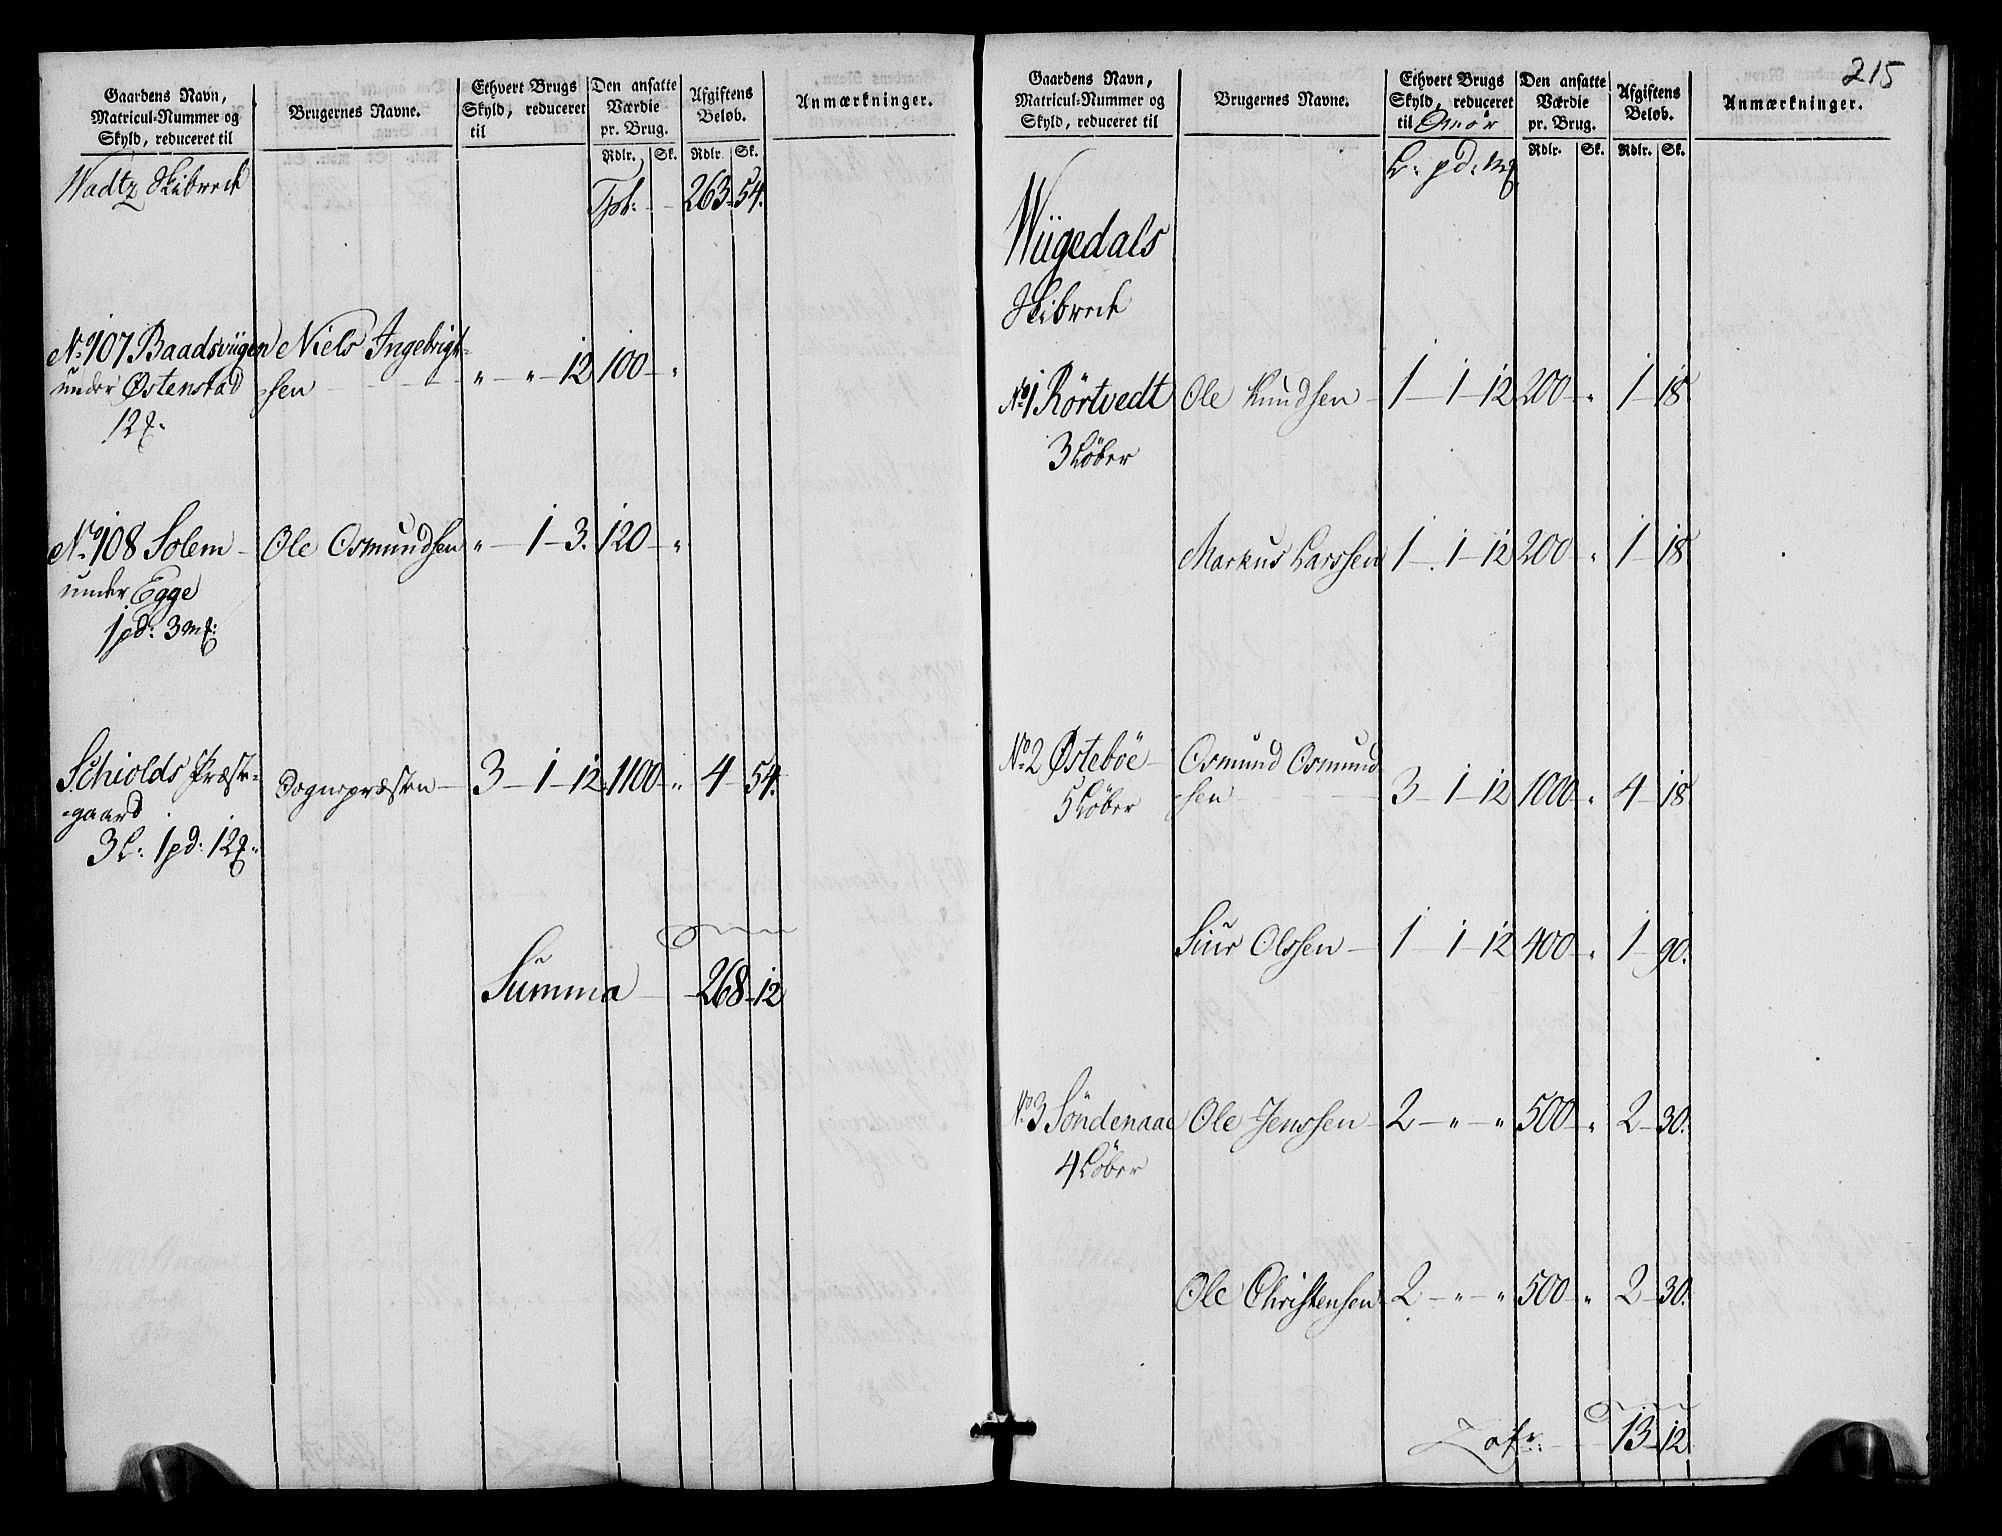 Gaardens Navn, Matricul-Nummer og Skyld, reduceret til | Brugernes Navne. | Ethvert Brugs Skyld, reduceret til | Den ansatte Værdie pr. Brug. | Afgiftens Beløb. | Anmærkninger.
Rdlr. Sk. Rdlr. Sk.
Wadtz Skibreck Tpt: 263 54.
No 107 Baadsviigen Niels Ingebrigt- 
under Østenstad sen " " 12 100 "
12 #.
No 108 Solem Ole Osmundsen " 1 3. 120 "
under Egge
1 pd: 3 m#:
Schiolds Præste- Sognepræsten 3 1 12 1100 " 4 54.
-gaard
3 L: 1 pd: 12 #.
Summa 268 12
215
Gaardens Navn, Matricul-Nummer og Skyld, reduceret til | Brugernes Navne. | Ethvert Brugs Skyld, reduceret til Smør | Den ansatte Værdie pr. Brug. | Afgiftens Beløb. | Anmærkninger.
Rdlr. Sk. Rdlr. Sk.
L: pd: m#
Wiigedals
Skibreck
No 1 Rörtvedt Ole Knudsen 1 1 12 200 " 1 18
3 Löber
Markus Larssen 1 1 12 200 " 1 18
No 2 Østebøe Osmund Osmund-
5 Löber sen 3 1 12 1000 " 4 18
Siur Olssen 1 1 12 400 " 1 90.
No 3 Söndenaae Ole Jenssen 2 " " 500 " 2 30.
4 Löber
Ole Christensen 2 " " 500 " 2 30.
13 12